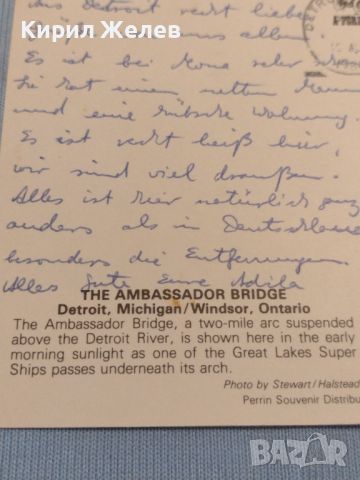 Кирил Желев
aus Detroit recht liebe
Grüße allen
Es ist bei Mona sehr
Sie hat einen netten Mann
und eine hübsche Wohnung.
Es ist recht heiß hier,
wir sind viel draußen.
Alles ist hier natürlich ganz
anders als in Deutschland
besonders die Entfernungen.
Alles Gute Eure Adila
DETRO
THE AMBASSADOR BRIDGE
Detroit, Michigan/Windsor, Ontario
The Ambassador Bridge, a two-mile arc suspended
above the Detroit River, is shown here in the early
morning sunlight as one of the Great Lakes Super
Ships passes underneath its arch.
Photo by Stewart/Halstead
Perrin Souvenir Distribu
bazar